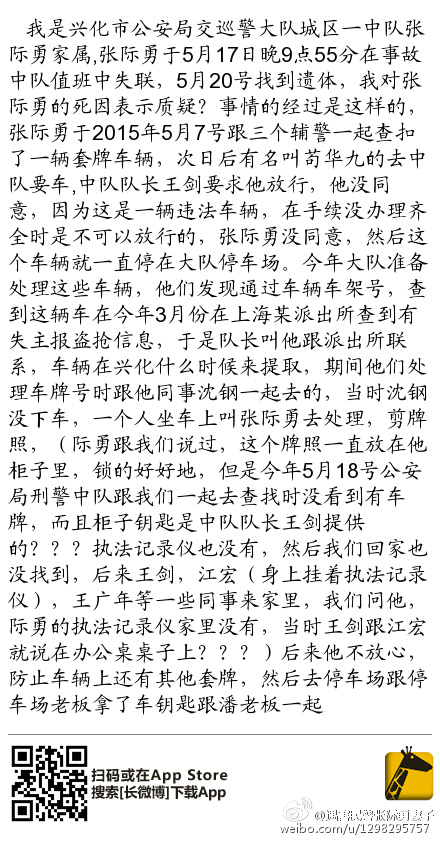 我是兴化市公安局交巡警大队城区一中队张
际勇家属,张际勇于5月17日晚9点55分在事故
中队值班中失联，5月20号找到遗体，我对张
际勇的死因表示质疑？事情的经过是这样的，
张际勇于2015年5月7号跟三个辅警一起查扣
了一辆套牌车辆，次日后有名叫芶华九的去中
队要车,中队队长王剑要求他放行，他没同
意，因为这是一辆违法车辆，在手续没办理齐
全时是不可以放行的，张际勇没同意，然后这
个车辆就一直停在大队停车场。今年大队准备
处理这些车辆，他们发现通过车辆车架号，查
到这辆车在今年3月份在上海某派出所查到有
失主报盗抢信息，于是队长叫他跟派出所联
系，车辆在兴化什么时候来提取，期间他们处
理车牌号时跟他同事沈钢一起去的，当时沈钢
没下车，一个人坐车上叫张际勇去处理，剪牌
照，（际勇跟我们说过，这个牌照一直放在他
柜子里，锁的好好地，但是今年5月18号公安
局刑警中队跟我们一起去查找时没看到有车
牌，而且柜子钥匙是中队队长王剑提供
的？？？执法记录仪也没有，然后我们回家也
没找到，后来王剑，江宏（身上挂着执法记录
仪），王广年等一些同事来家里，我们问他，
际勇的执法记录仪家里没有，当时王剑跟江宏
就说在办公桌桌子上？？？）后来他不放心，
防止车辆上还有其他套牌，然后去停车场跟停
车场老板拿了车钥匙跟潘老板一起
扫码或在App Store
搜索[长微博]下载App
weibo.com/u/1298295757